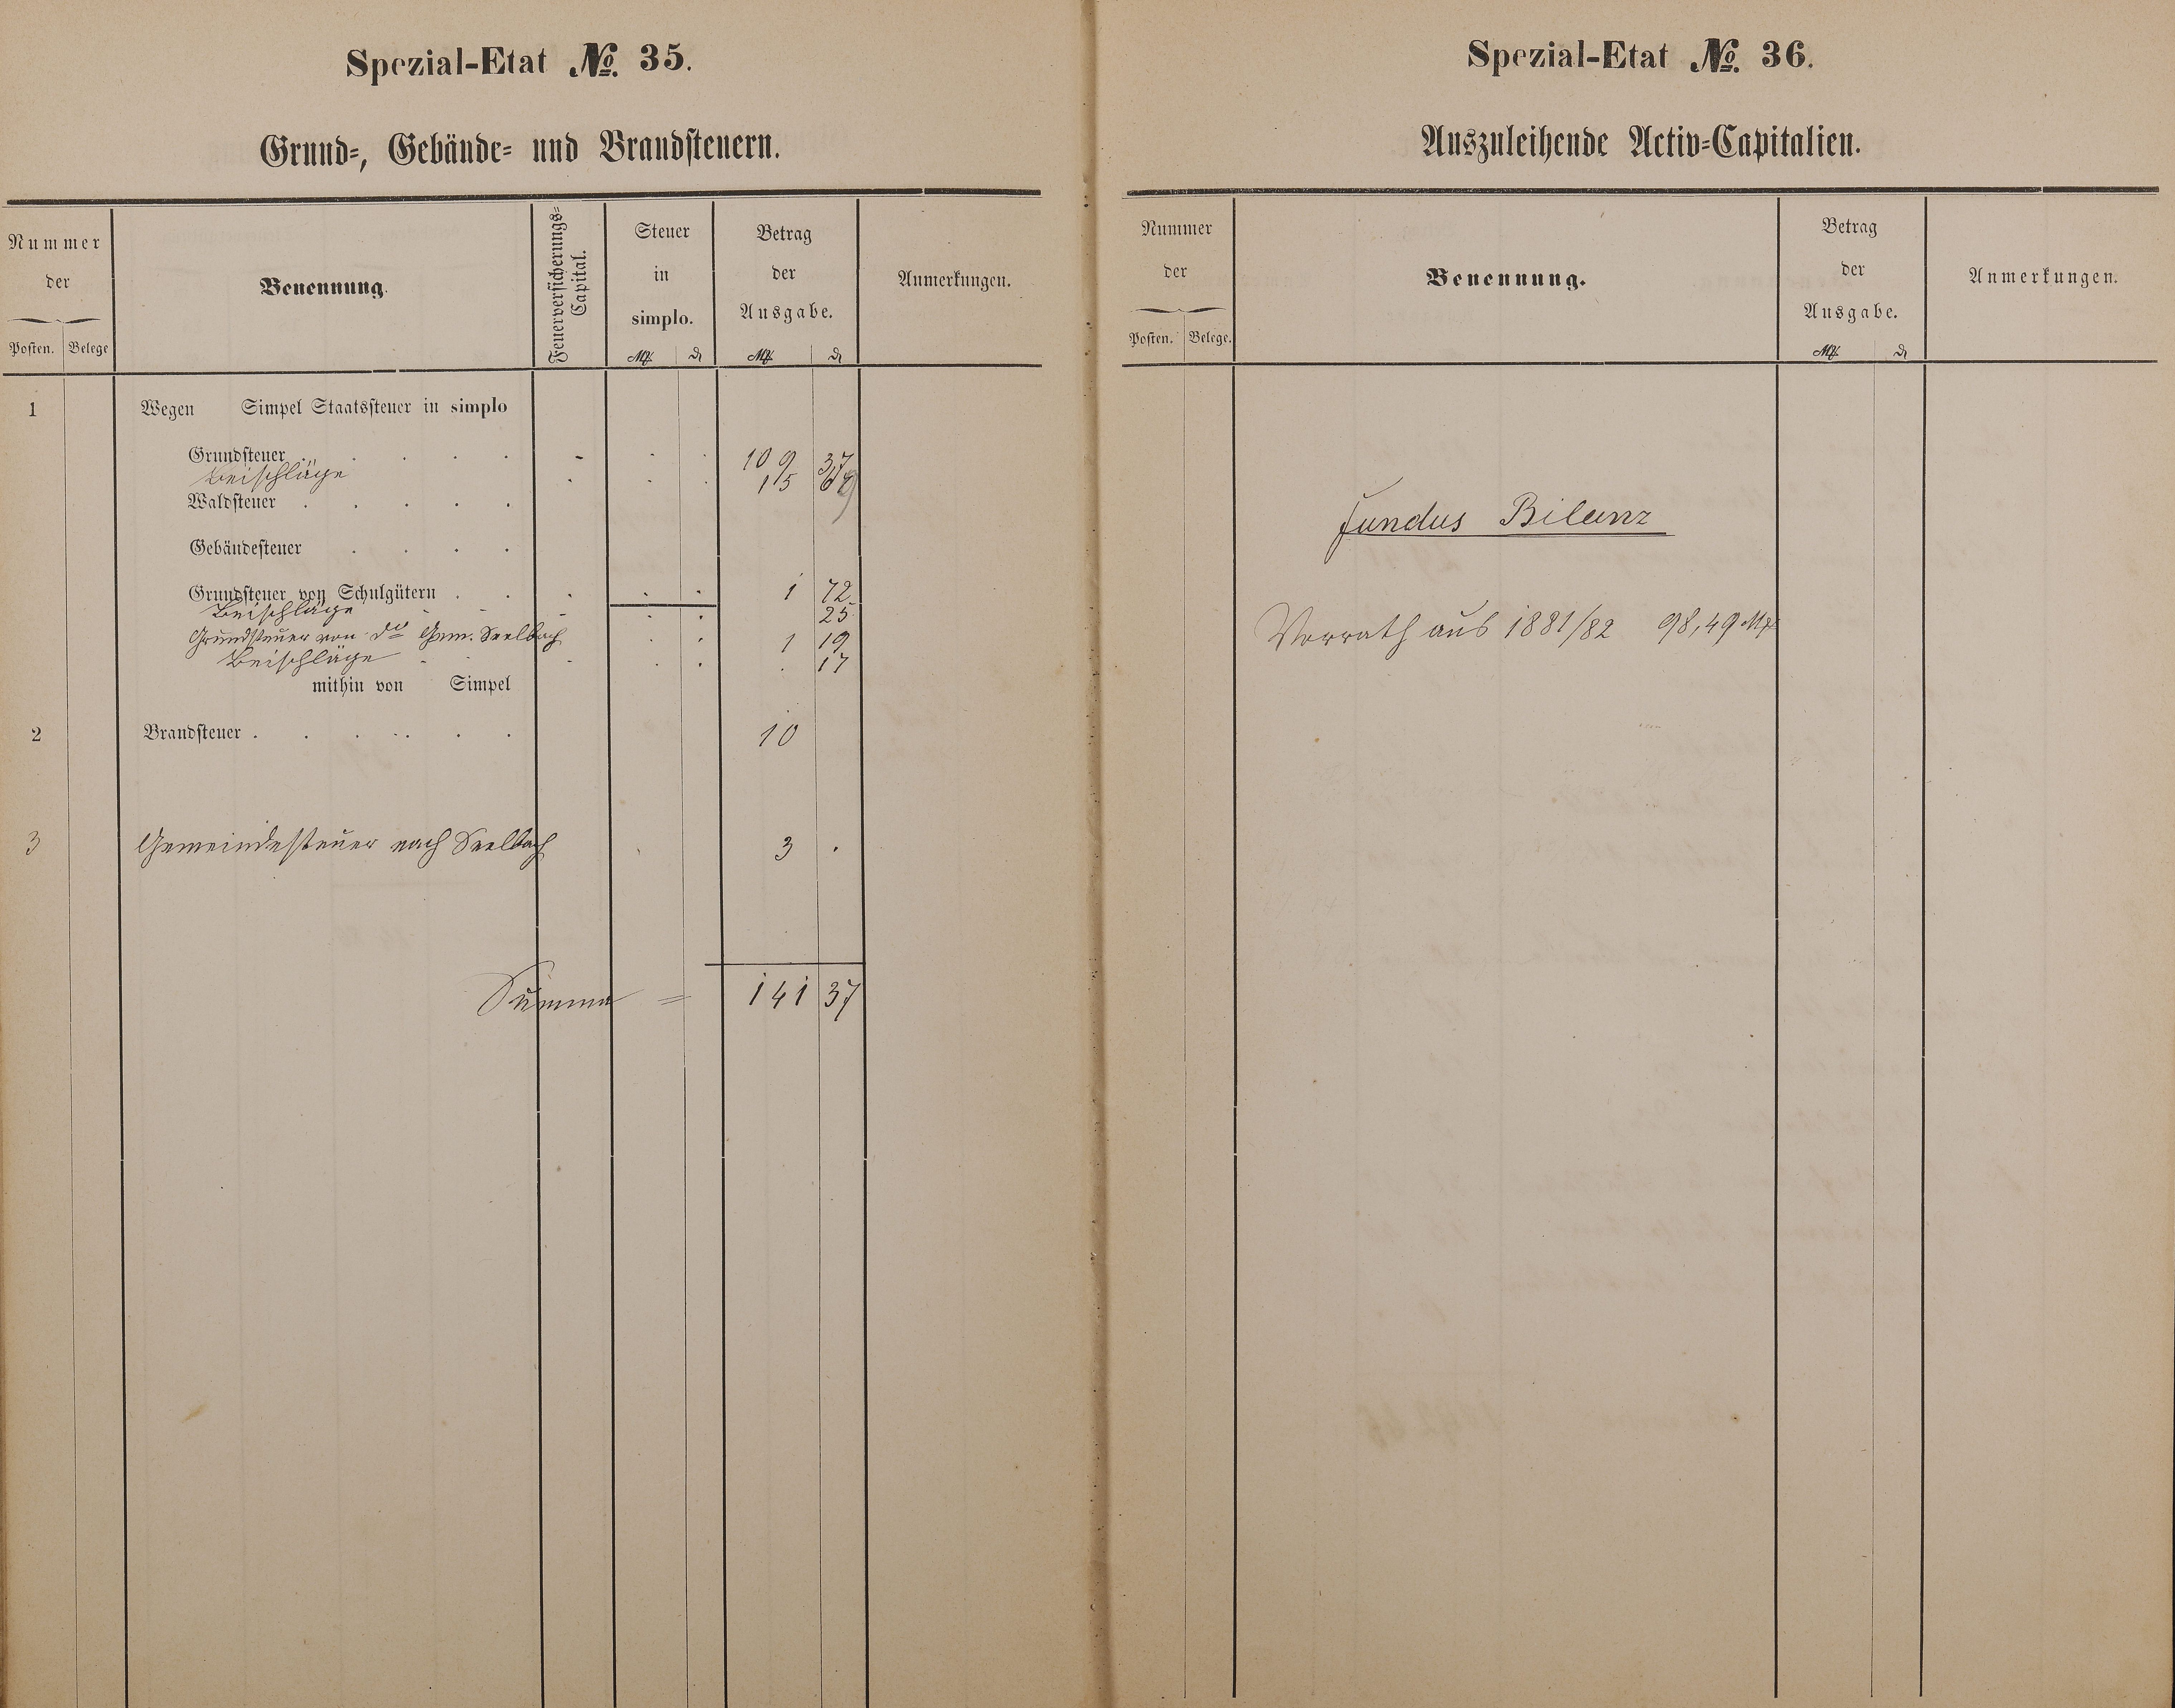 Spezial-Etat No. 35.
Grund-, Gebäude- und Brandsteuern.
Nummer der
Posten. Belege
Benennung.
Feuerversicherungs-Capital.
Steuer in simplo.
M. d
Betrag der Ausgabe.
M. d
Anmerkungen.
1 Wegen Simpel Staatssteuer in simplo
Grundsteuer . . . . . 109 37
Beischläge 15 67
Waldsteuer . . . . .
Gebäudesteuer . . . .
Grundsteuer von Schulgütern . . 1 72
Beischläge 25
Grundsteuer von do Gem. Seelbach 1 19
Beischläge . 17
mithin von Simpel
2 Brandsteuer . . . . . . 10
3 Gemeindesteuer nach Seelbach 3 .
Summa = 141 37
Spezial-Etat No. 36.
Auszuleihende Activ-Capitalien.
Nummer der
Posten. Belege.
Benennung.
Betrag der Ausgabe.
M. d
Anmerkungen.
Fundus Bilanz
Vorrath aus 1881/82 98,49 M